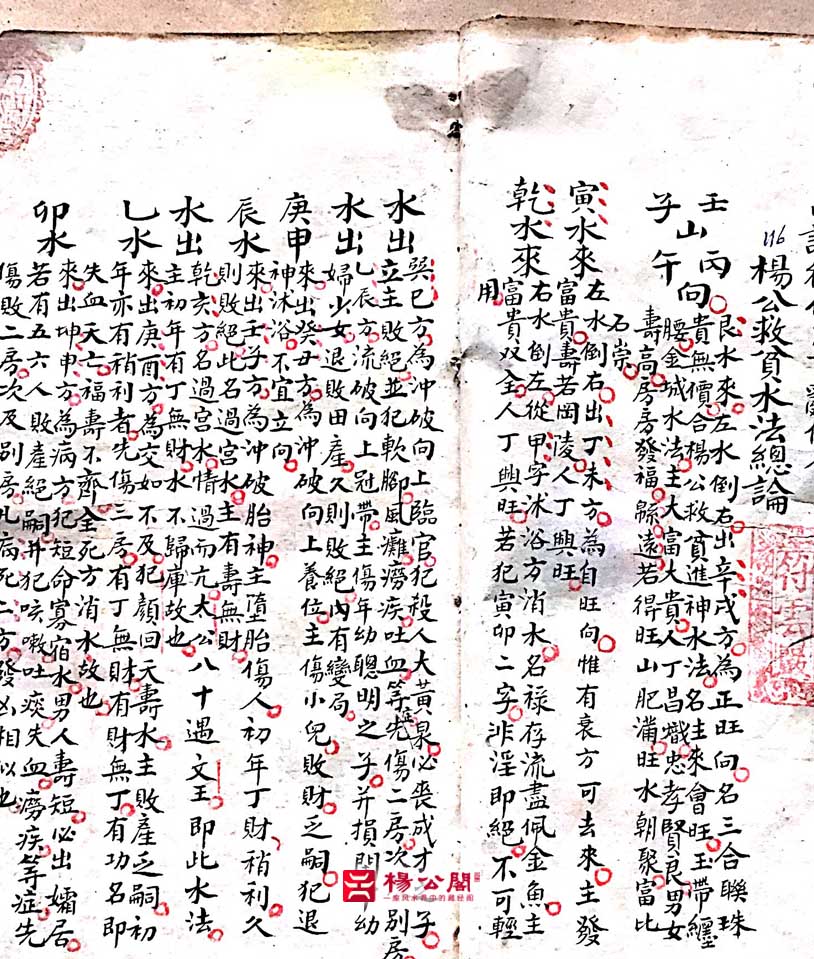 116 楊公救貧水法總論
壬山丙向
子午
艮水來左水倒右出辛戌方為正旺向名三合聯珠
貴無價合楊公救貧進神水法名主來會旺玉帶纏
腰金城水法主大富大貴人丁昌熾忠孝賢良男女
壽高房房發福綿遠若得旺山肥滿旺水朝聚富比
石崇
寅水來左水倒右出丁未方為自旺向惟有衰方可去來主發
富貴壽若岡陵人丁興旺
乾水來右水倒左從甲字沐浴方消水名祿存流盡佩金魚主
富貴双全人丁興旺若犯寅卯二字非淫即絕不可輕
用
水出巽巳方為沖破向上臨官犯殺人大黃泉必喪成才之子
立主敗絕並犯軟脚風癱癆疾吐血等症先傷二房次別房
水出乙辰方流破向上冠帶主傷年幼聰明之子并損閨幼
婦少女退敗田產久則敗絕內有變局
庚甲來出癸丑方為沖破向上養位主傷小兒敗財乏嗣犯退
神沐浴不宜立向
辰水來出壬子方為沖破胎神主墮胎傷人初年丁財稍利久
則敗絕此名過宮水主有壽無財
水出乾亥方名過宮水情過而亢太公八十遇文王即此水法
主初年有丁無財水不歸庫故也
乙水來出庚酉方為交如不及犯顏回夭壽水主敗產乏嗣初
年亦有稍利者先傷三房有丁無財有財無丁有功名即
失血夭亡福壽不齊全死方消水故也
卯水來出坤申方為病方犯短命寡宿水男人壽短必出孀居
若有五六人敗產絕嗣并犯咳嗽吐痰失血癆疾等症先
傷敗二房次及別房凡病死二方發凶相似也
楊公閣